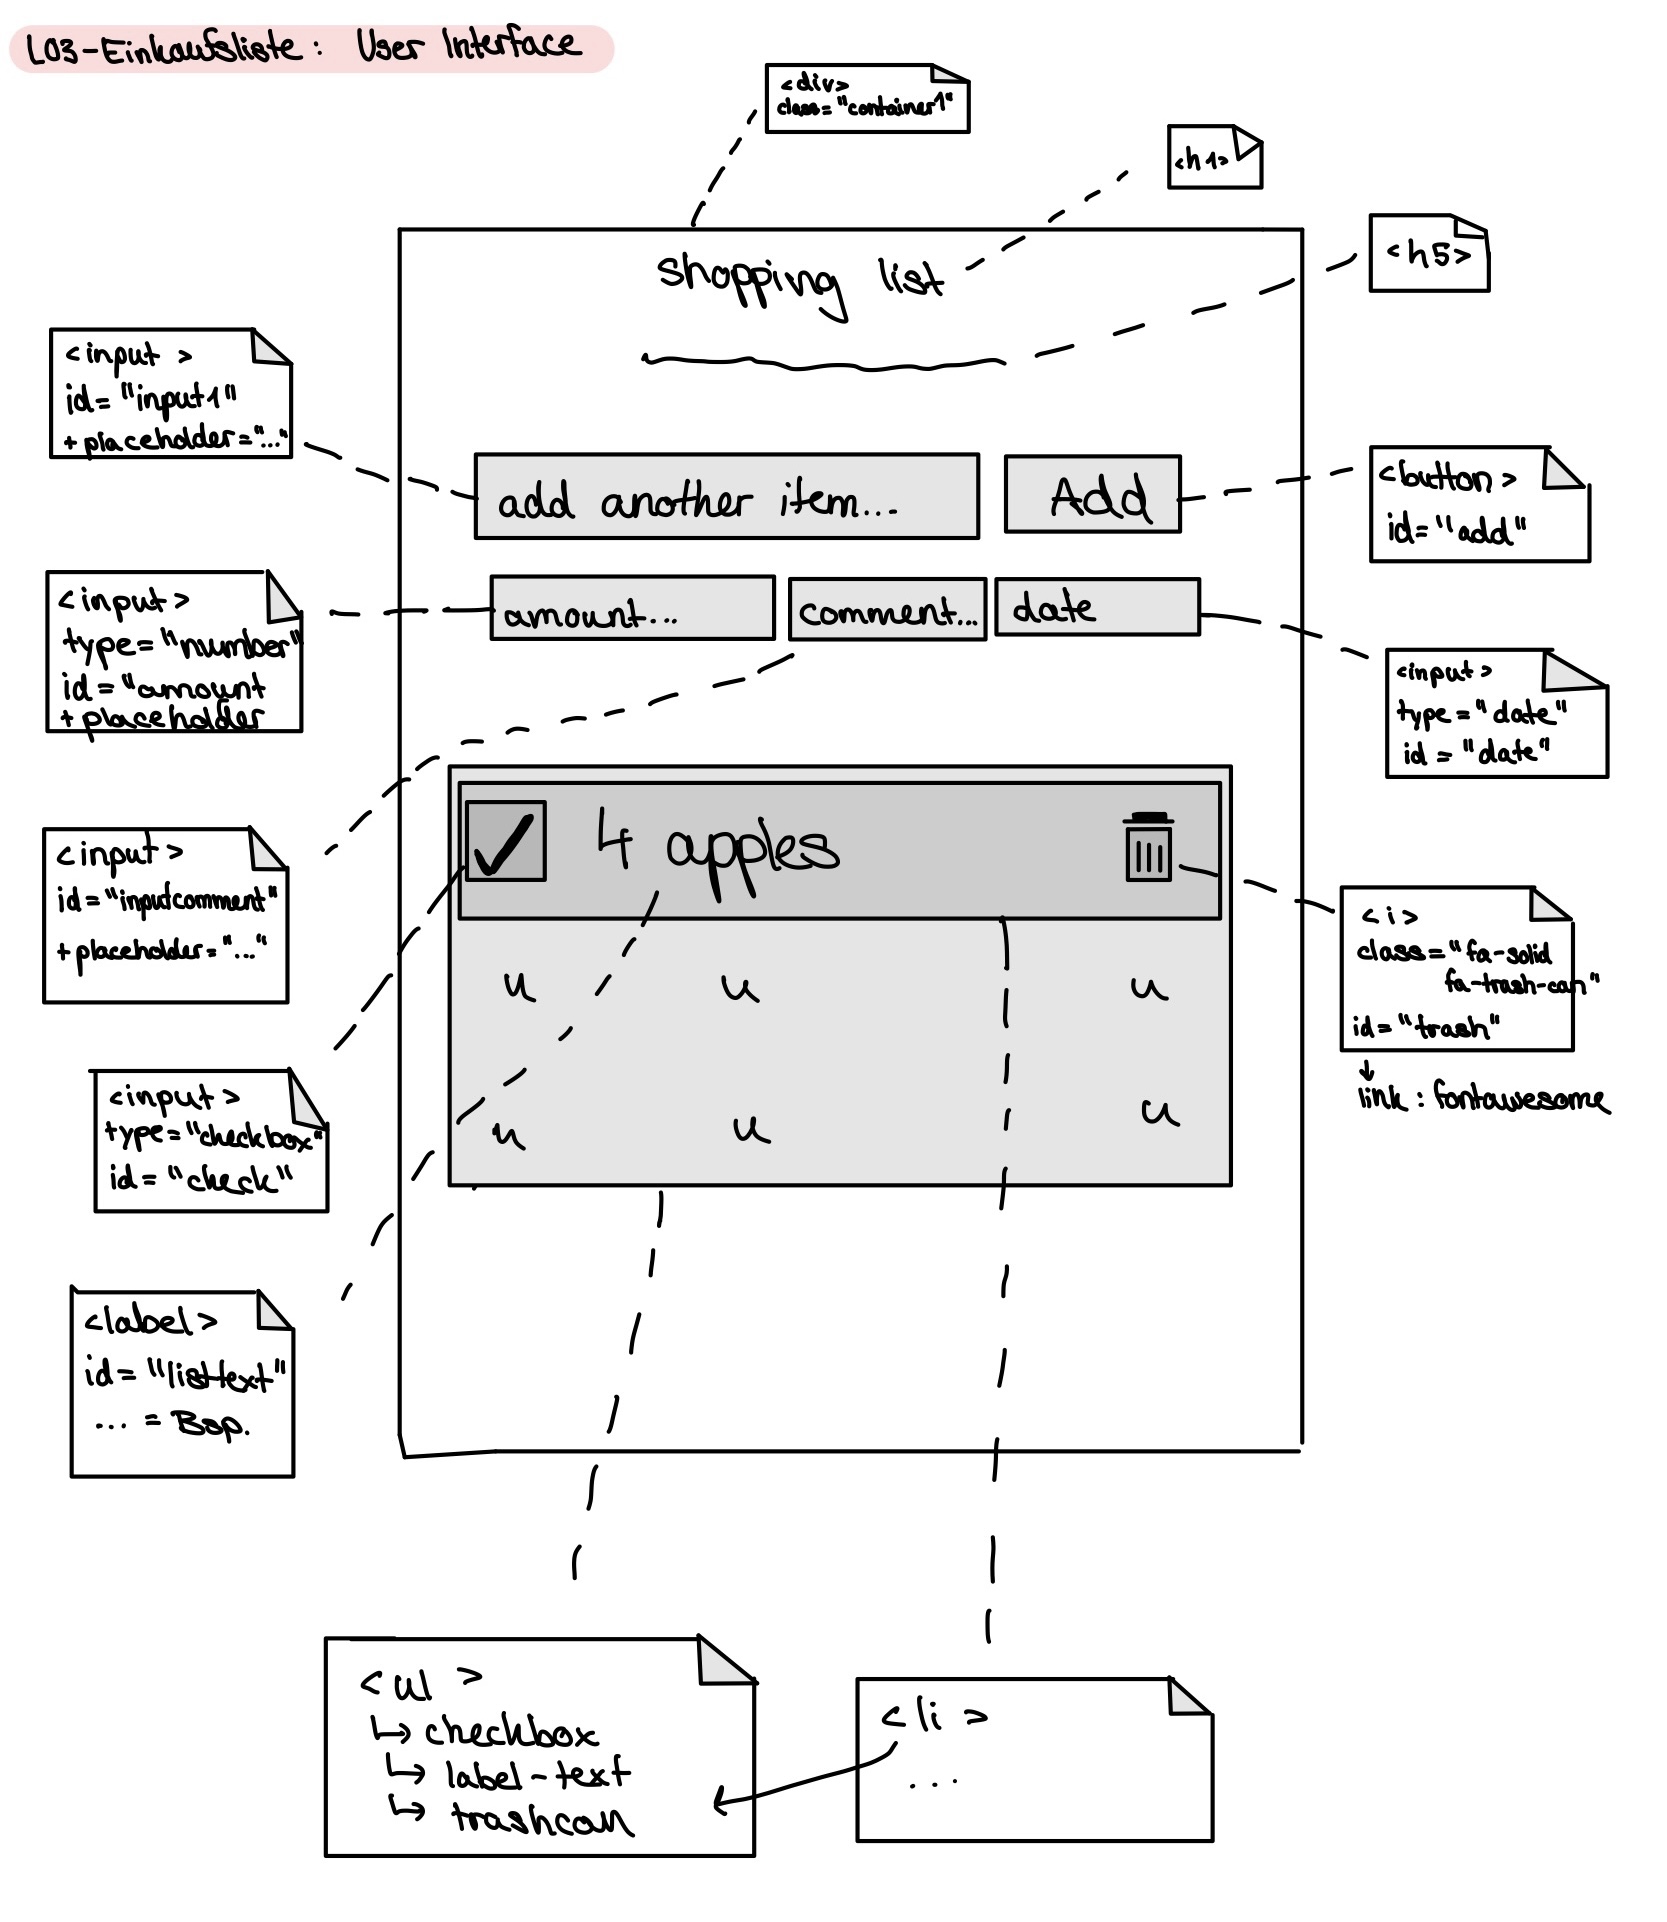 L03-Einkaufsliste: User Interface
<div>
class="container1"
<h1>
<h5>
shopping list
<input >
id="input1"
+placeholder="..."
add another item...
Add
<button >
id="add"
<input>
type="number"
id="amount
+placeholder
amount...
comment...
date
<input>
type="date"
id="date"
<input >
id="inputcomment"
+placeholder="..."
4 apples
<i>
class="fa-solid
fa-trash-can"
id="trash"
link: fontawesome
u u u
u u u
<input>
type="checkbox"
id="check"
<label>
id="listtext"
... = Bsp.
<ul >
checkbox
label-text
trashcan
<li >
...